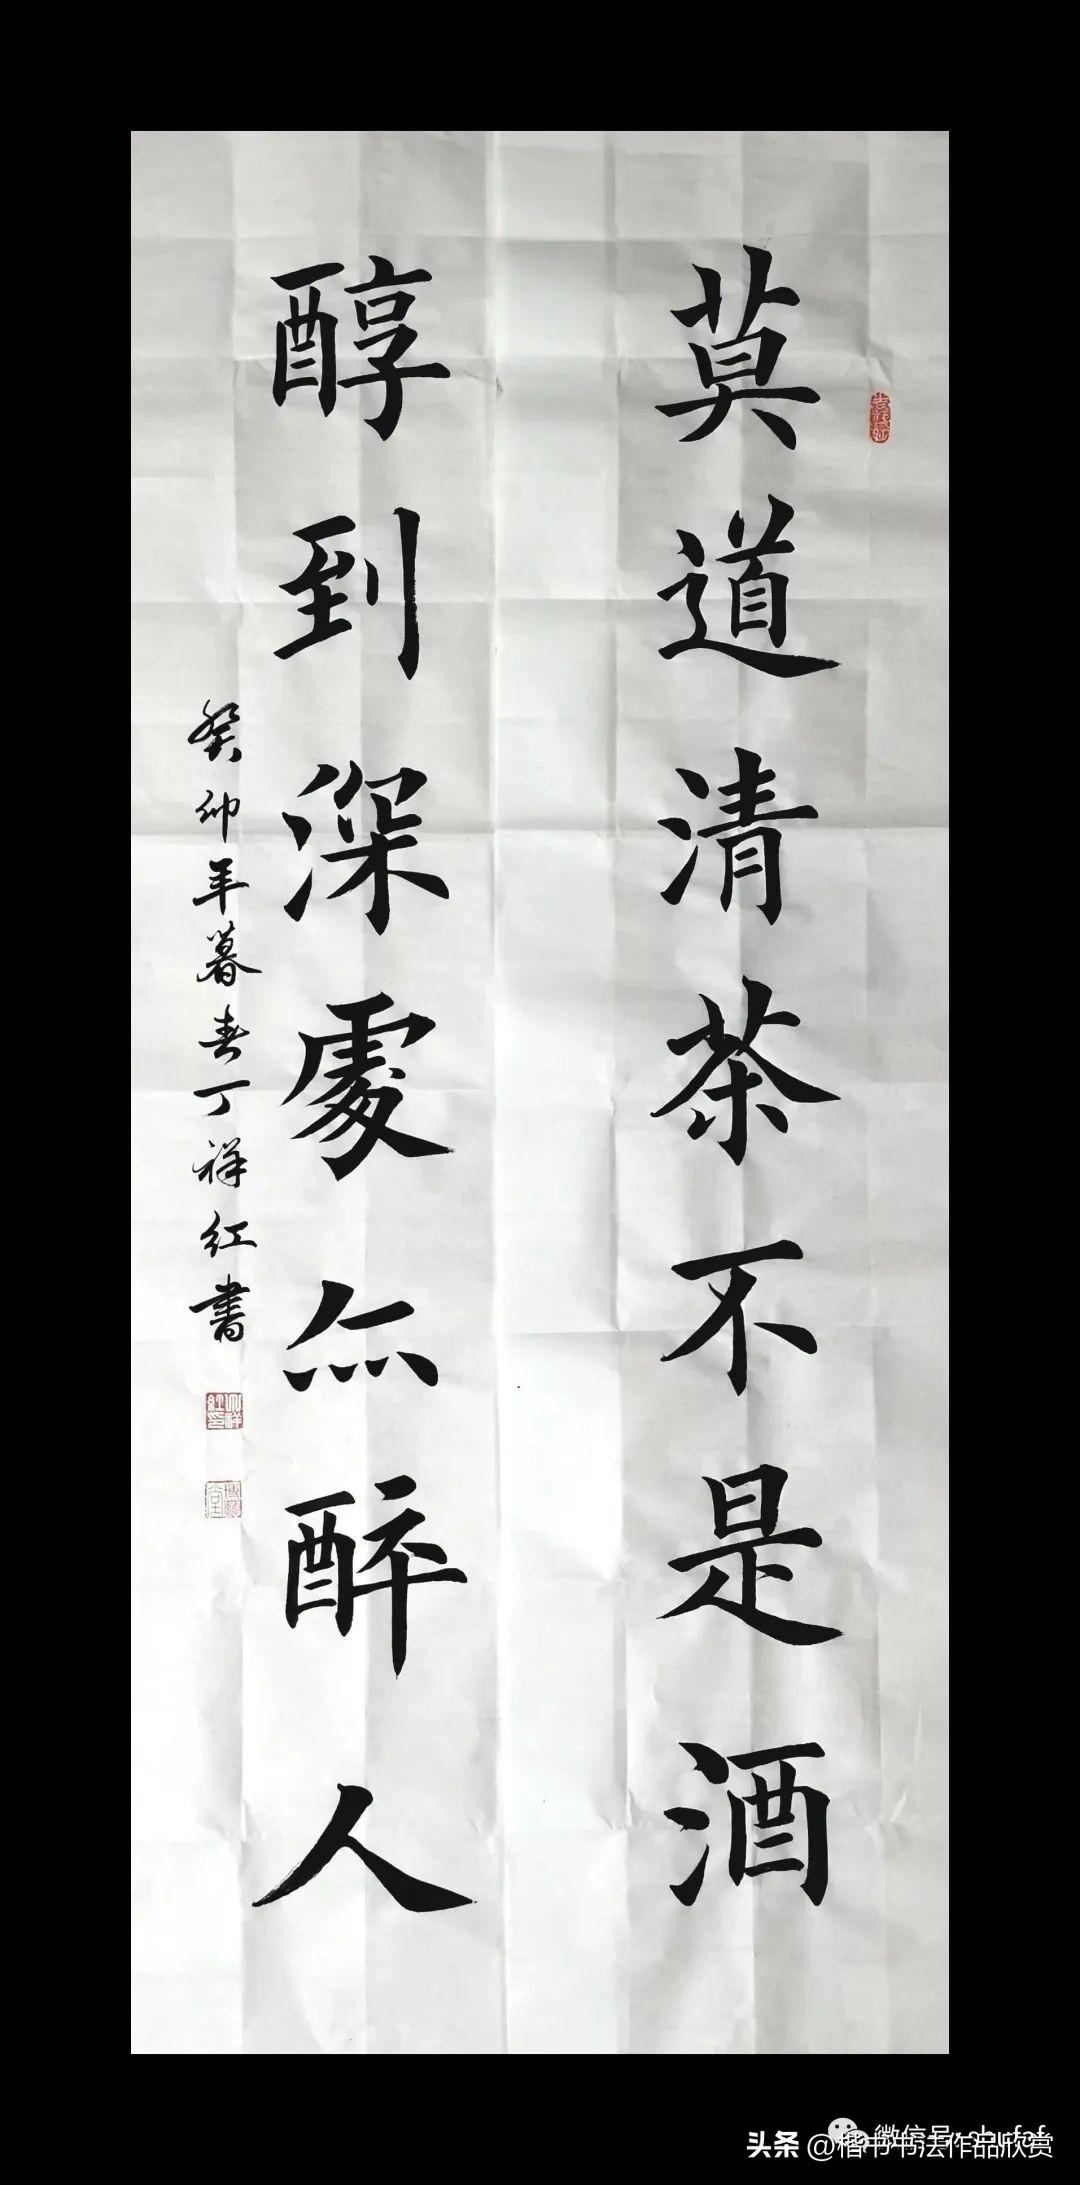 莫道清茶不是酒
醇到深處亦醉人
癸卯年暮春丁祥红書
头条 @楷书书法作品欣赏